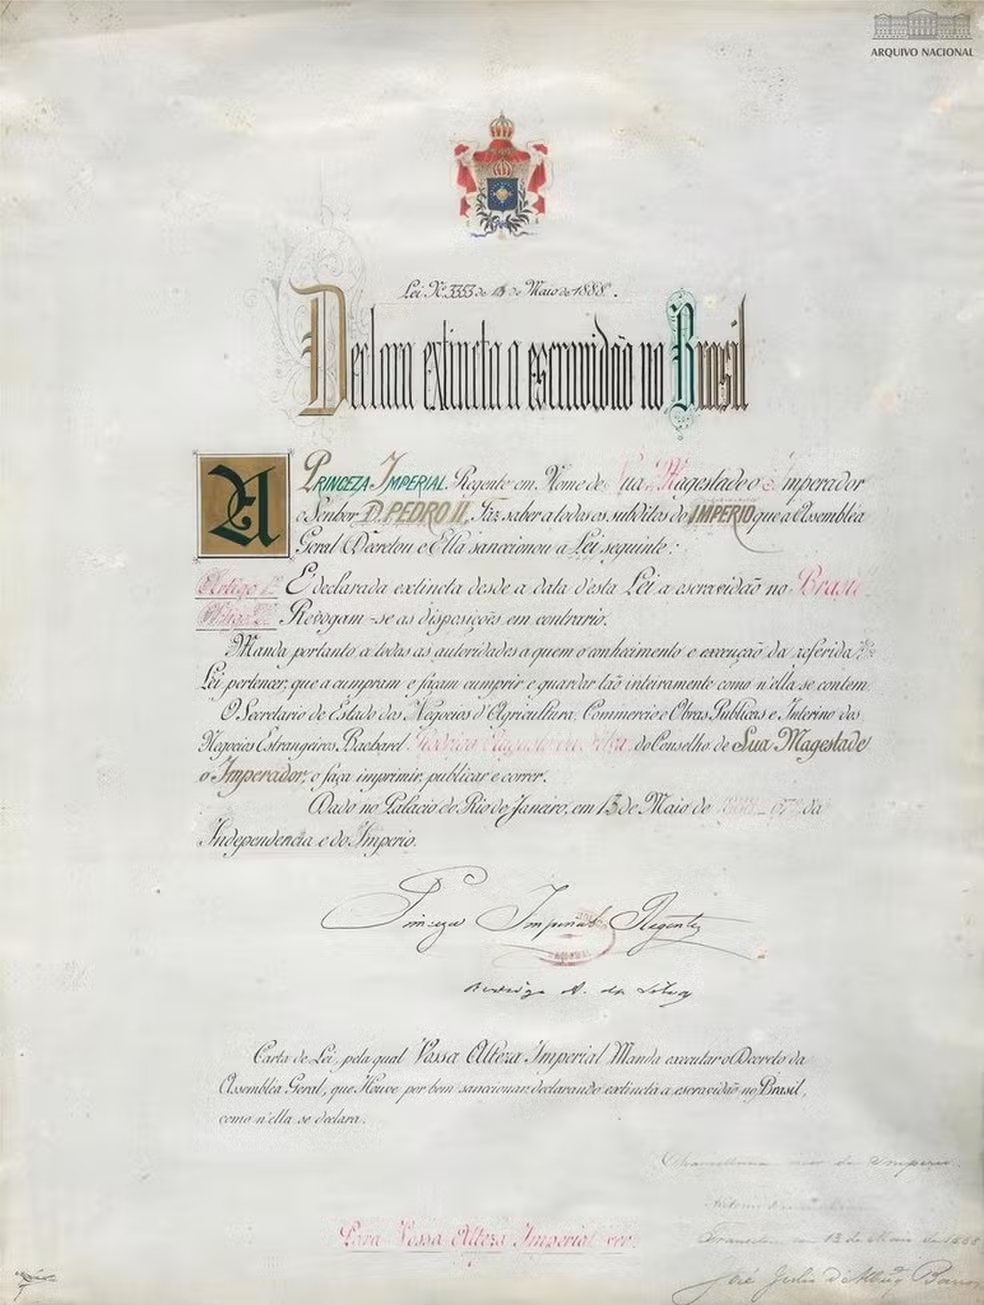 ARQUIVO NACIONAL
Lei Nº 3353 de 13 de Maio de 1888.
Declara extincta a escravidão no Brasil
A PRINCEZA IMPERIAL Regente em Nome de Sua Magestade o Imperador
o Senhor D. PEDRO II, Faz saber a todos os subditos do IMPERIO que a Assembléa
Geral Decretou e Ella sanccionou a Lei seguinte:
Artigo 1º É declarada extincta desde a data d'esta Lei a escravidão no Brasil
Artigo 2º Revogam-se as disposições em contrario.
Manda portanto a todas as autoridades a quem o conhecimento e execução da referida
Lei pertencer, que a cumpram e façam cumprir e guardar tão inteiramente como n'ella se contem.
O Secretario de Estado dos Negocios d'Agricultura, Commercio e Obras Publicas e Interino dos
Negocios Estrangeiros, Bacharel Rodrigo Augusto da Silva, do Conselho de Sua Magestade
o Imperador, o faça imprimir, publicar e correr.
Dado no Palacio do Rio de Janeiro, em 13 de Maio de 67º da
Independencia e do Imperio.
Princeza Imperial Regente
NACIONAL
Rodrigo A. da Silva
Carta de Lei, pela qual Vossa Alteza Imperial Manda executar o Decreto da
Assembléa Geral, que Houve por bem sanccionar, declarando extincta a escravidão no Brasil,
como n'ella se declara.
Chancellaria mór do Imperio
Para Vossa Alteza Imperial ver.
Transitou em 13 de Maio de 1888
José Julio d'Albuqº Barros